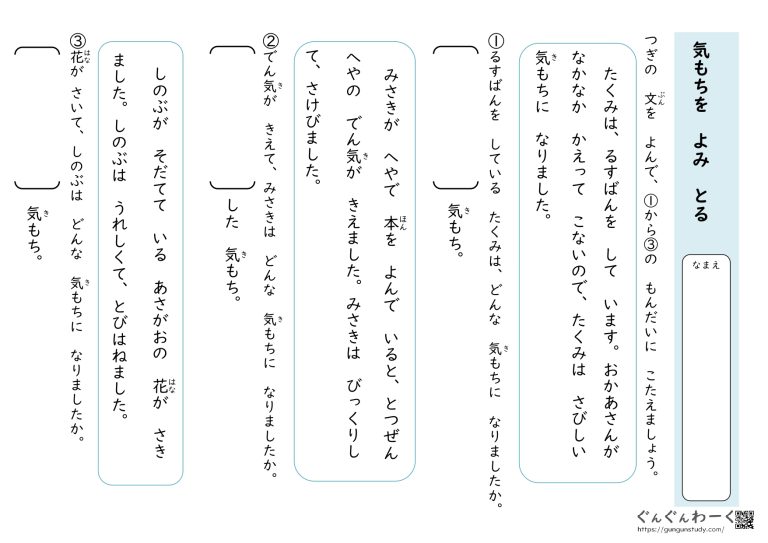 気もちを よみ とる
なまえ
つぎの 文を よんで、①から③の もんだいに こたえましょう。
たくみは、るすばんを して います。おかあさんが
なかなか かえって こないので、たくみは さびしい
気もちに なりました。
①るすばんを している たくみは、どんな 気もちに なりましたか。
気もち。
みさきが へやで 本を よんで いると、とつぜん
へやの でん気が きえました。みさきは びっくりし
て、さけびました。
②でん気が きえて、みさきは どんな 気もちに なりましたか。
した 気もち。
しのぶが そだてて いる あさがおの 花が さき
ました。しのぶは うれしくて、とびはねました。
③花が さいて、しのぶは どんな 気もちに なりましたか。
気もち。
ぐんぐんわーく
https://gungunstudy.com/